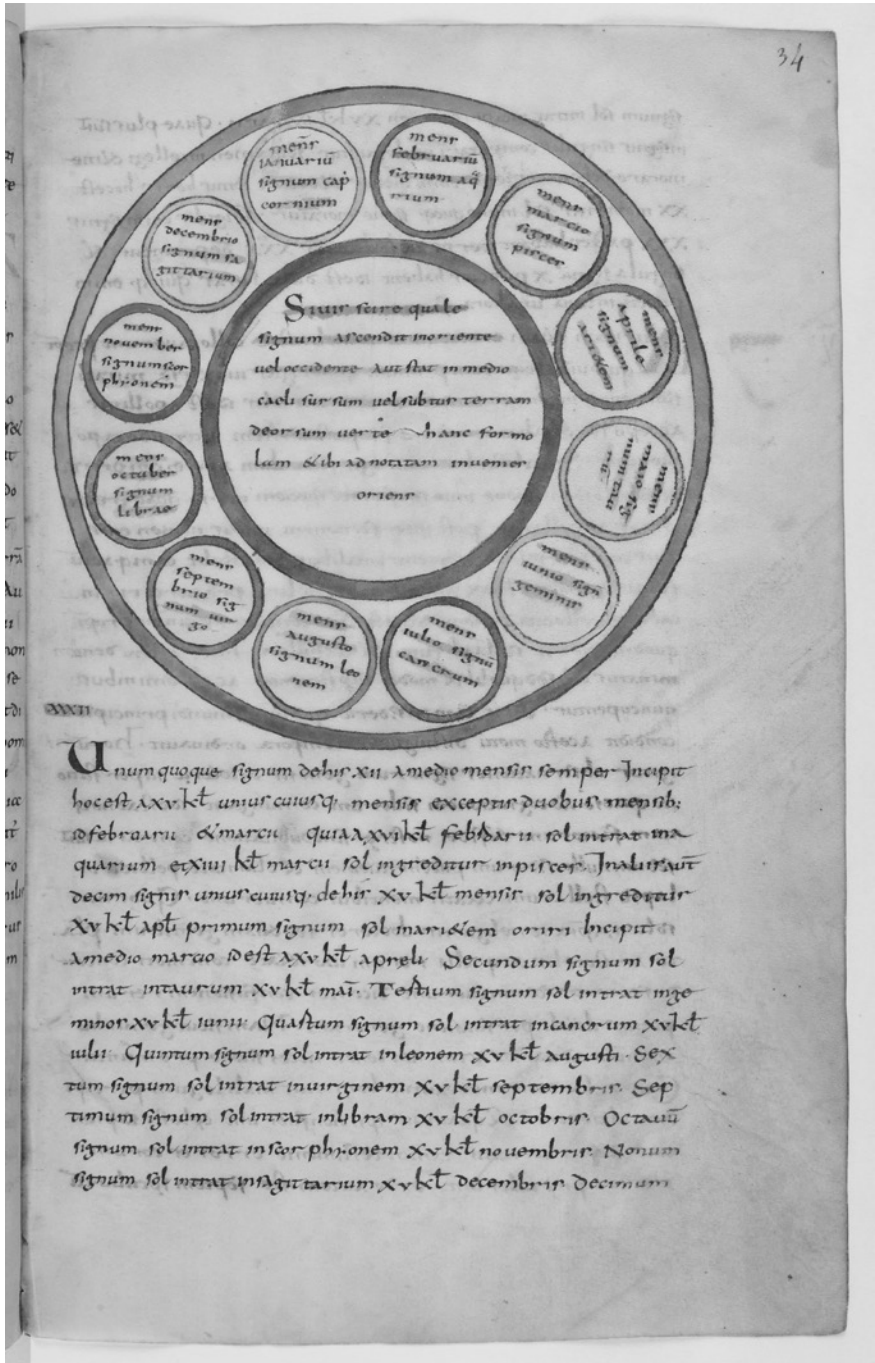 34
mens̅
ianuariu̅
signum cap̅
cornium
mens
februariu̅
signum aq̅
rium
mens
marcio
signum
pisces
mens
aprile
signum
ari&em
mens
maio sig
num tau
mens
iunio sign̅
geminis
mens
iulio signu̅
cancrum
mens
augusto
signum leo
nem
mens
septem
brio sig
num uir
go
mens
octuber
signum
librae
mens
nouember
signum scor
phionem
mens
decembrio
signum sa
gittarium
Siuis scire quale
signum ascendit inoriente
uel occidente aut stat in medio
caeli sursum uel subtur terram
deorsum uerte hanc formo
lam &ibi adnotatam inuenies
oriens
XXXII
Unum quoque signum dehis xii amedio mensis semper Incipit
hocest axv kł unius cuiusq; mensis exceptis duobus mensib;
idfebroarii &marcii quia axvi kł febroarii sol intrat ina
quarium etxiiii kł marcii sol ingreditur inpisces. Inaliis aut̅
decim signis unius cuiusq; dehis xv kł mensis sol ingreditur
xv kł apł primum signum sol inari&em oriri Incipit
amedio marcio idest axv kł apreli Secundum signum sol
intrat intaurum xv kł mai̅. Tertium signum sol intrat inge
minos xv kł iunii Quartum signum sol intrat incancrum xv kł
iulii Quintum signum sol intrat inleonem xv kł augusti. Sex
tum signum sol intrat inuirginem xv kł septembris. Sep
timum signum sol intrat inlibram xv kł octobris. Octauu̅
signum sol intrat inscorphionem xv kł nouembris. Nonum
signum sol intrat insagittarium xv kł decembris Decimum